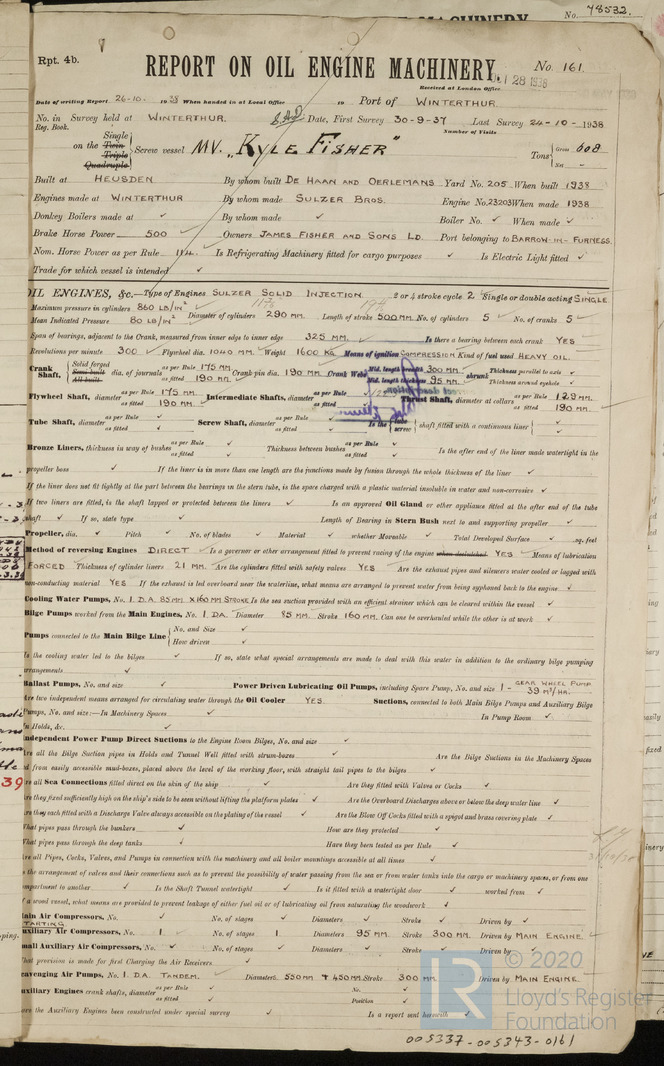 No. 78532.
Rpt. 4b.
REPORT ON OIL ENGINE MACHINERY.
No. 161.
Received at London Office
28 1938
Date of writing Report 26-10- 1938 When handed in at Local Office 19 Port of WINTERTHUR
No. in Reg. Book. Survey held at WINTERTHUR. Date, First Survey 30-9-37 Last Survey 24-10-1938
Number of Visits
on the Single Twin Triple Quadruple Screw vessel MV. „KYLE FISHER" Tons Gross 608 Net
Built at HEUSDEN By whom built DE HAAN AND OERLEMANS Yard No. 205 When built 1938
Engines made at WINTERTHUR By whom made SULZER BROS. Engine No. 23203 When made 1938
Donkey Boilers made at ✓ By whom made ✓ Boiler No. ✓ When made ✓
Brake Horse Power 500 Owners JAMES FISHER AND SONS LD. Port belonging to BARROW-IN-FURNESS.
Nom. Horse Power as per Rule Is Refrigerating Machinery fitted for cargo purposes ✓ Is Electric Light fitted ✓
Trade for which vessel is intended ✓
OIL ENGINES, &c.—Type of Engines SULZER SOLID INJECTION 2 or 4 stroke cycle 2 Single or double acting SINGLE
Maximum pressure in cylinders 860 LB/IN² Diameter of cylinders 290 MM. Length of stroke 500 MM. No. of cylinders 5 No. of cranks 5
Mean Indicated Pressure 80 LB/IN²
Span of bearings, adjacent to the Crank, measured from inner edge to inner edge 325 MM. Is there a bearing between each crank YES
Revolutions per minute 300 Flywheel dia. 1040 MM. Weight 1600 KG. Means of ignition COMPRESSION Kind of fuel used HEAVY OIL.
Crank Shaft, Solid forged Semi built All built dia. of journals as per Rule 175 MM. as fitted 190 MM. Crank pin dia. 190 MM. Crank Webs Mid. length breadth 300 MM. Mid. length thickness 95 MM. shrunk Thickness parallel to axis ✓ Thickness around eyehole ✓
Flywheel Shaft, diameter as per Rule 175 MM. as fitted 190 MM. Intermediate Shafts, diameter as per Rule as fitted Thrust Shaft, diameter at collars as per Rule 129 MM. as fitted 190 MM.
Tube Shaft, diameter as per Rule ✓ as fitted ✓ Screw Shaft, diameter as per Rule as fitted Is the tube screw shaft fitted with a continuous liner ✓
Bronze Liners, thickness in way of bushes as per Rule as fitted ✓ Thickness between bushes as per Rule ✓ as fitted ✓ Is the after end of the liner made watertight in the
propeller boss ✓ If the liner is in more than one length are the junctions made by fusion through the whole thickness of the liner ✓
If the liner does not fit tightly at the part between the bearings in the stern tube, is the space charged with a plastic material insoluble in water and non-corrosive ✓
If two liners are fitted, is the shaft lapped or protected between the liners ✓ Is an approved Oil Gland or other appliance fitted at the after end of the tube
shaft ✓ If so, state type ✓ Length of Bearing in Stern Bush next to and supporting propeller ✓
Propeller, dia. ✓ Pitch ✓ No. of blades ✓ Material ✓ whether Moveable ✓ Total Developed Surface ✓ sq. feet
Method of reversing Engines DIRECT Is a governor or other arrangement fitted to prevent racing of the engine when declutched YES Means of lubrication
FORCED Thickness of cylinder liners 21 MM. Are the cylinders fitted with safety valves YES Are the exhaust pipes and silencers water cooled or lagged with
non-conducting material YES If the exhaust is led overboard near the waterline, what means are arranged to prevent water from being syphoned back to the engine ✓
Cooling Water Pumps, No. 1. D.A. 85 MM. X 160 MM STROKE Is the sea suction provided with an efficient strainer which can be cleared within the vessel ✓
Bilge Pumps worked from the Main Engines, No. 1. DA. Diameter 85 MM. Stroke 160 MM. Can one be overhauled while the other is at work ✓
Pumps connected to the Main Bilge Line No. and Size ✓ How driven ✓
Is the cooling water led to the bilges ✓ If so, state what special arrangements are made to deal with this water in addition to the ordinary bilge pumping
arrangements ✓
Ballast Pumps, No. and size ✓ Power Driven Lubricating Oil Pumps, including Spare Pump, No. and size 1 - GEAR WHEEL PUMP 39 M³/HR.
Are two independent means arranged for circulating water through the Oil Cooler YES. Suctions, connected to both Main Bilge Pumps and Auxiliary Bilge
Pumps, No. and size:—In Machinery Spaces ✓ In Pump Room ✓
In Holds, &c. ✓
Independent Power Pump Direct Suctions to the Engine Room Bilges, No. and size ✓
Are all the Bilge Suction pipes in Holds and Tunnel Well fitted with strum-boxes ✓ Are the Bilge Suctions in the Machinery Spaces
led from easily accessible mud-boxes, placed above the level of the working floor, with straight tail pipes to the bilges ✓
Are all Sea Connections fitted direct on the skin of the ship ✓ Are they fitted with Valves or Cocks ✓
Are they fixed sufficiently high on the ship's side to be seen without lifting the platform plates ✓ Are the Overboard Discharges above or below the deep water line ✓
Are they each fitted with a Discharge Valve always accessible on the plating of the vessel ✓ Are the Blow Off Cocks fitted with a spigot and brass covering plate ✓
What pipes pass through the bunkers ✓ How are they protected ✓
What pipes pass through the deep tanks ✓ Have they been tested as per Rule ✓
Are all Pipes, Cocks, Valves, and Pumps in connection with the machinery and all boiler mountings accessible at all times ✓
Is the arrangement of valves and their connections such as to prevent the possibility of water passing from the sea or from water tanks into the cargo or machinery spaces, or from one
compartment to another ✓ Is the Shaft Tunnel watertight ✓ Is it fitted with a watertight door ✓ worked from ✓
If a wood vessel, what means are provided to prevent leakage of either fuel oil or of lubricating oil from saturating the woodwork ✓
Main Air Compressors, No. ✓ No. of stages ✓ Diameters ✓ Stroke ✓ Driven by ✓
STARTING
Auxiliary Air Compressors, No. 1 No. of stages 1 Diameters 95 MM. Stroke 300 MM. Driven by MAIN ENGINE
Small Auxiliary Air Compressors, No. ✓ No. of stages ✓ Diameters ✓ Stroke ✓ Driven by ✓
What provision is made for first Charging the Air Receivers ✓
Scavenging Air Pumps, No. 1. DA. TANDEM. Diameters 550 MM + 450 MM. Stroke 300 MM. Driven by MAIN ENGINE
Auxiliary Engines crank shafts, diameter as per Rule ✓ as fitted ✓ No. ✓ Position ✓
Have the Auxiliary Engines been constructed under special survey ✓ Is a report sent herewith ✓
© 2020
Lloyd's Register
Foundation
LR
005337-005343-0161